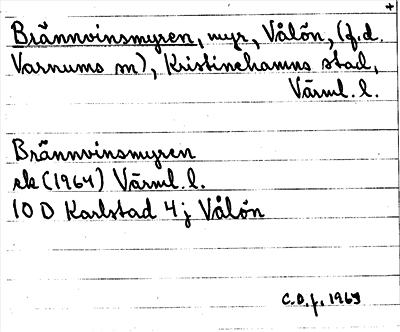 +
Brännvinsmyren, myr, Vålön, (f.d.
Varnums sn), Kristinehamns stad,
Värml. l.
Brännvinsmyren
ek (1964) Värml. l.
10 D Karlstad 4j Vålön
C.O.f. 1969